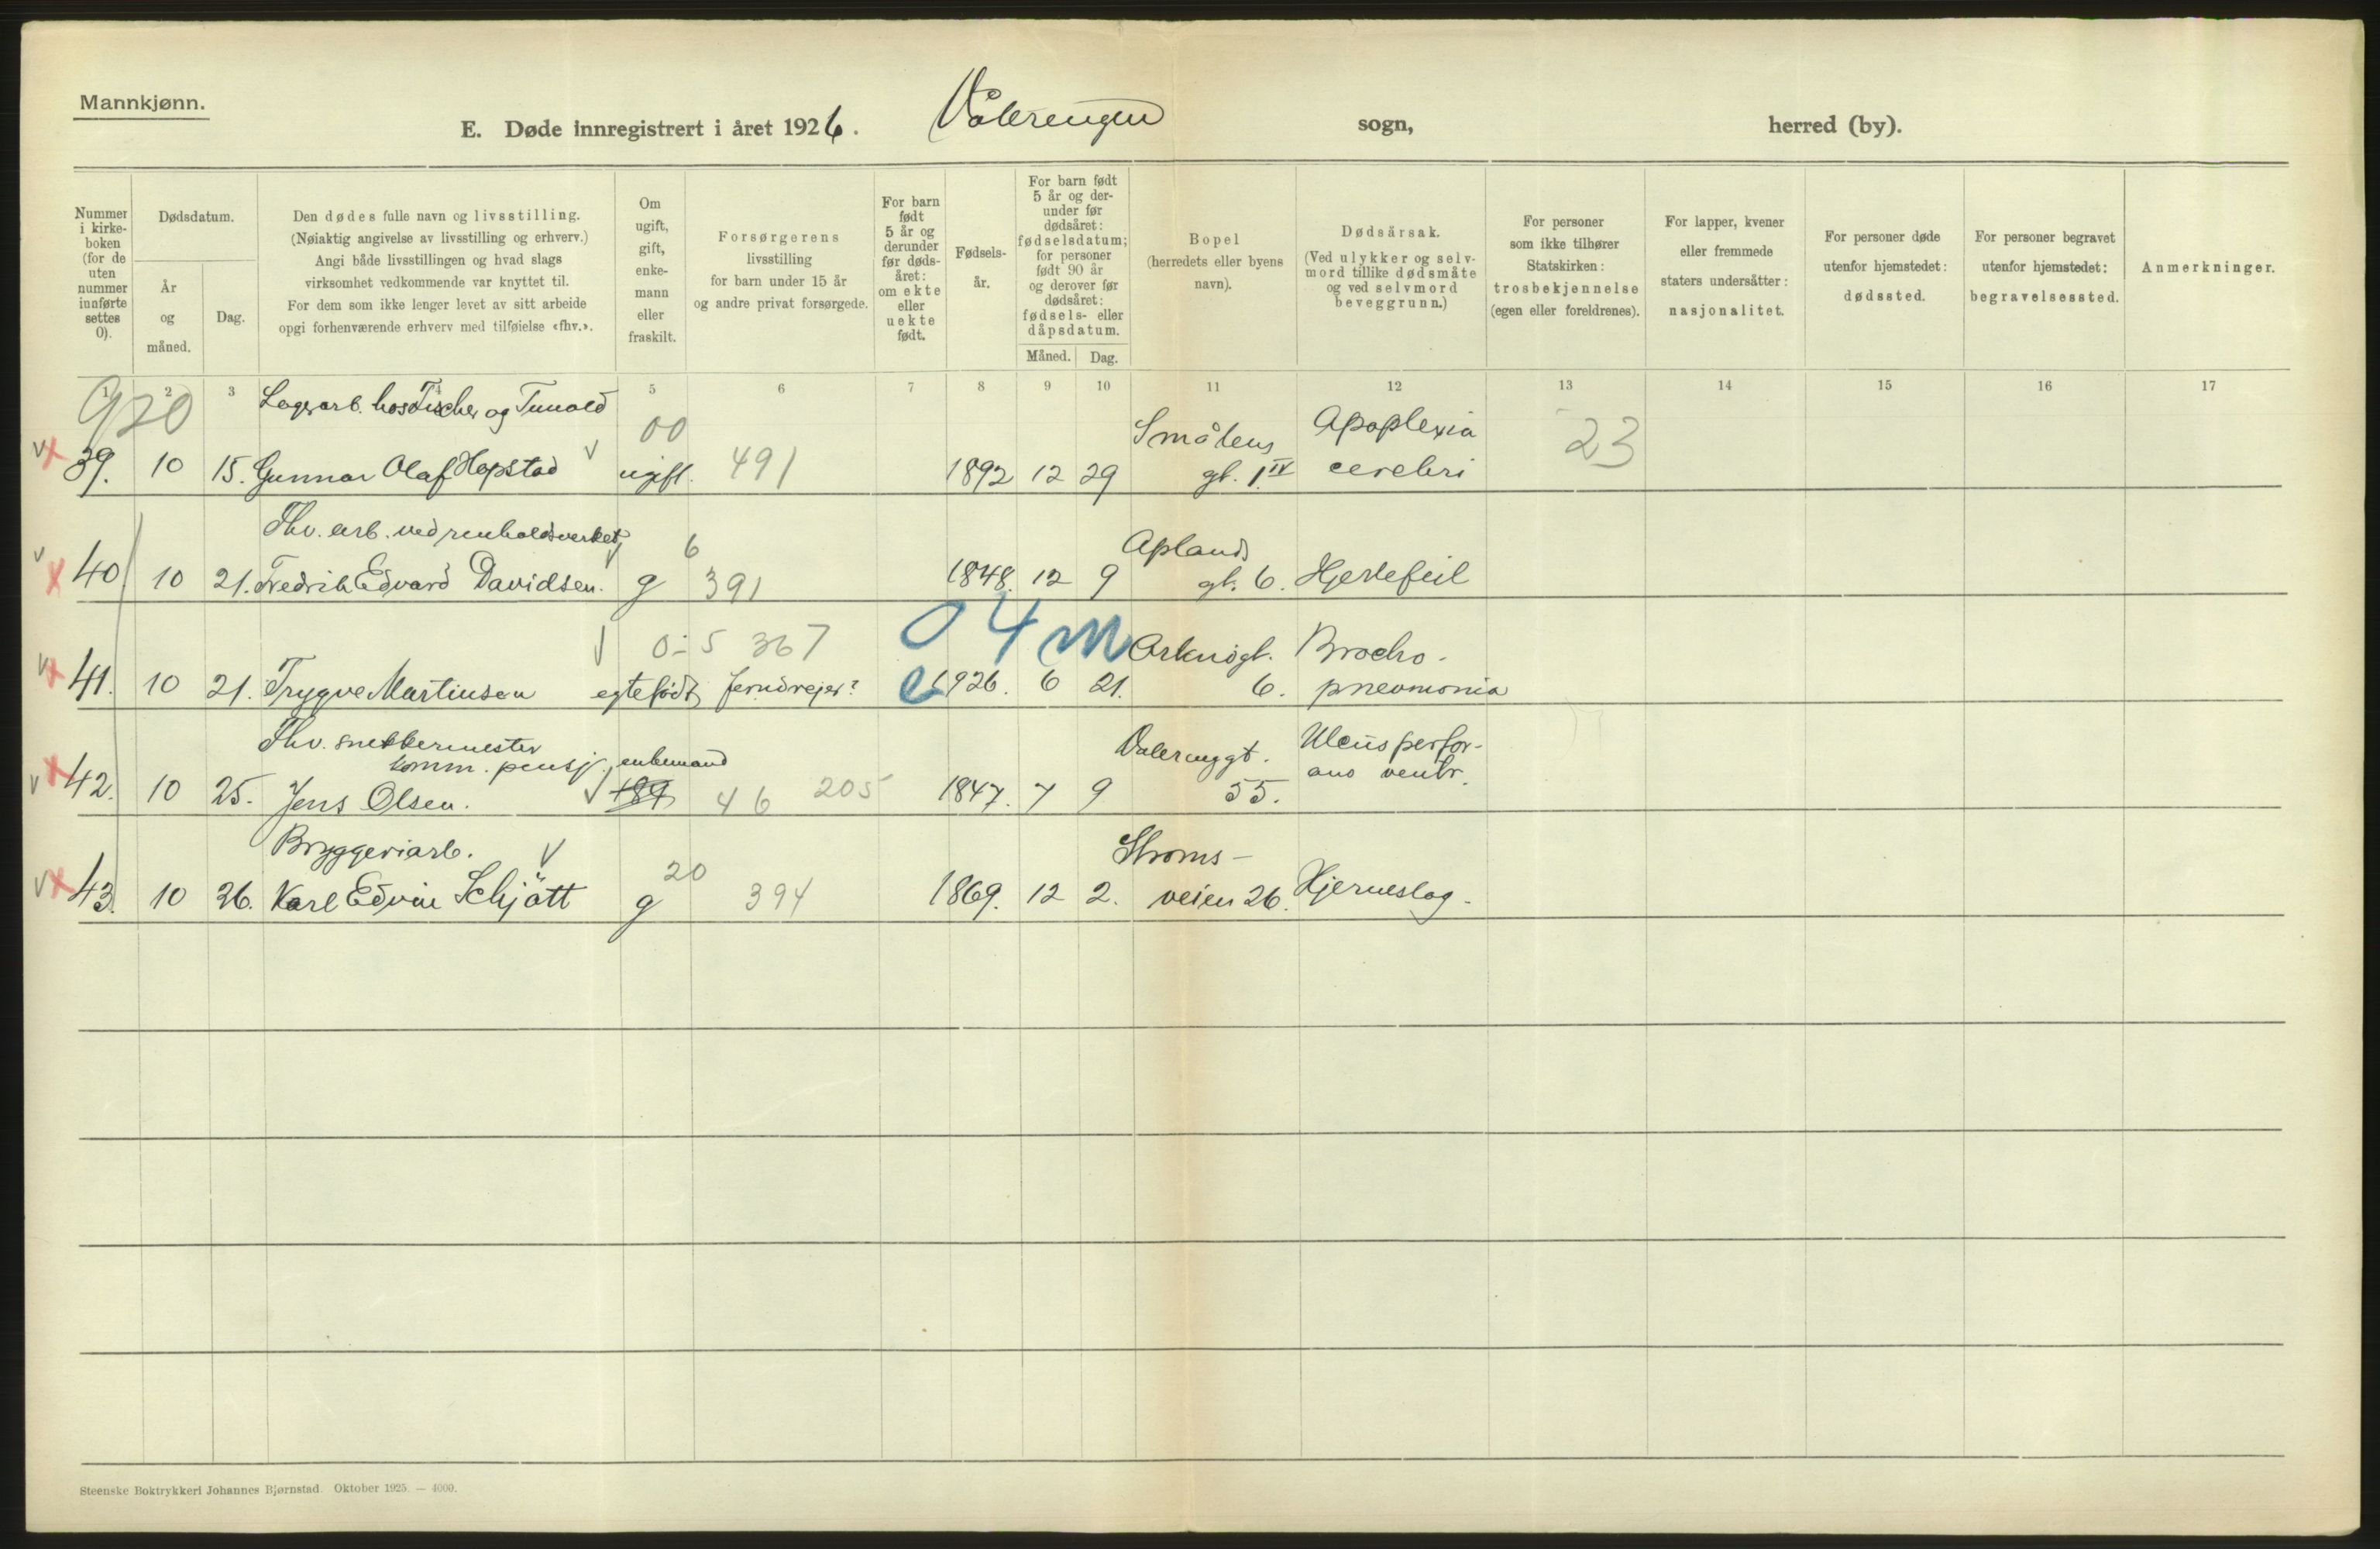 Mannkjønn.
E. Døde innregistrert i året 1926. Vålerengen sogn, herred (by).
Nummer i kirke-boken (for de uten nummer innførte settes 0).
Dødsdatum.
År og måned.
Dag.
Den dødes fulle navn og livsstilling.
(Nøiaktig angivelse av livsstilling og erhverv.)
Angi både livsstillingen og hvad slags
virksomhet vedkommende var knyttet til.
For dem som ikke lenger levet av sitt arbeide
opgi forhenværende erhverv med tilføielse «fhv.».
Om ugift, gift, enke-mann eller fraskilt.
Forsørgerens
livsstilling
for barn under 15 år
og andre privat forsørgede.
For barn født 5 år og derunder før døds-året: om ekte eller uekte født.
Fødsels-år.
For barn født 5 år og der-under før dødsåret: fødselsdatum; for personer født 90 år og derover før dødsåret: fødsels- eller dåpsdatum.
Måned. Dag.
Bopel
(herredets eller byens
navn).
Dødsårsak.
(Ved ulykker og selv-
mord tillike dødsmåte
og ved selvmord
beveggrunn.)
For personer
som ikke tilhører
Statskirken:
trosbekjennelse
(egen eller foreldrenes).
For lapper, kvener
eller fremmede
staters undersåtter:
nasjonalitet.
For personer døde
utenfor hjemstedet:
dødssted.
For personer begravet
utenfor hjemstedet:
begravelsessted.
Anmerkninger.
1 2 3 4 5 6 7 8 9 10 11 12 13 14 15 16 17
920 Lagerarb. hos Tischer og Tunold 00 Småłens Apoplexia 23
39. 10 15. Gunnar Olaf Hopstad ugift. 491 1892 12 29 gt. 1 IV cerebri
Fhv. arb. ved renholdsverket, 6 Apland
40 10 21. Fredrik Edvard Davidsen. g 391 1848. 12 9 gt. 6. Hjertefeil
0-5 367 04 m gt. Broncho-
41. 10 21. Trygve Martinsen egtefødt, jerndrejer? e 1926. 6 21. 6. pneumonia
Fhv. snekkermester
komm. pensj., enkemand Valerenggt. Ulcus perfor-
ans ventr.
42. 10 25. Jens Olsen. 46 205 1847. 7 9 55.
Bryggeriarb. 20 Strøms-
43. 10 26. Karl Edvin Schjött g 394 1869. 12 2. veien 26. Hjerneslag.
Steenske Boktrykkeri Johannes Bjørnstad. Oktober 1925. — 4000.